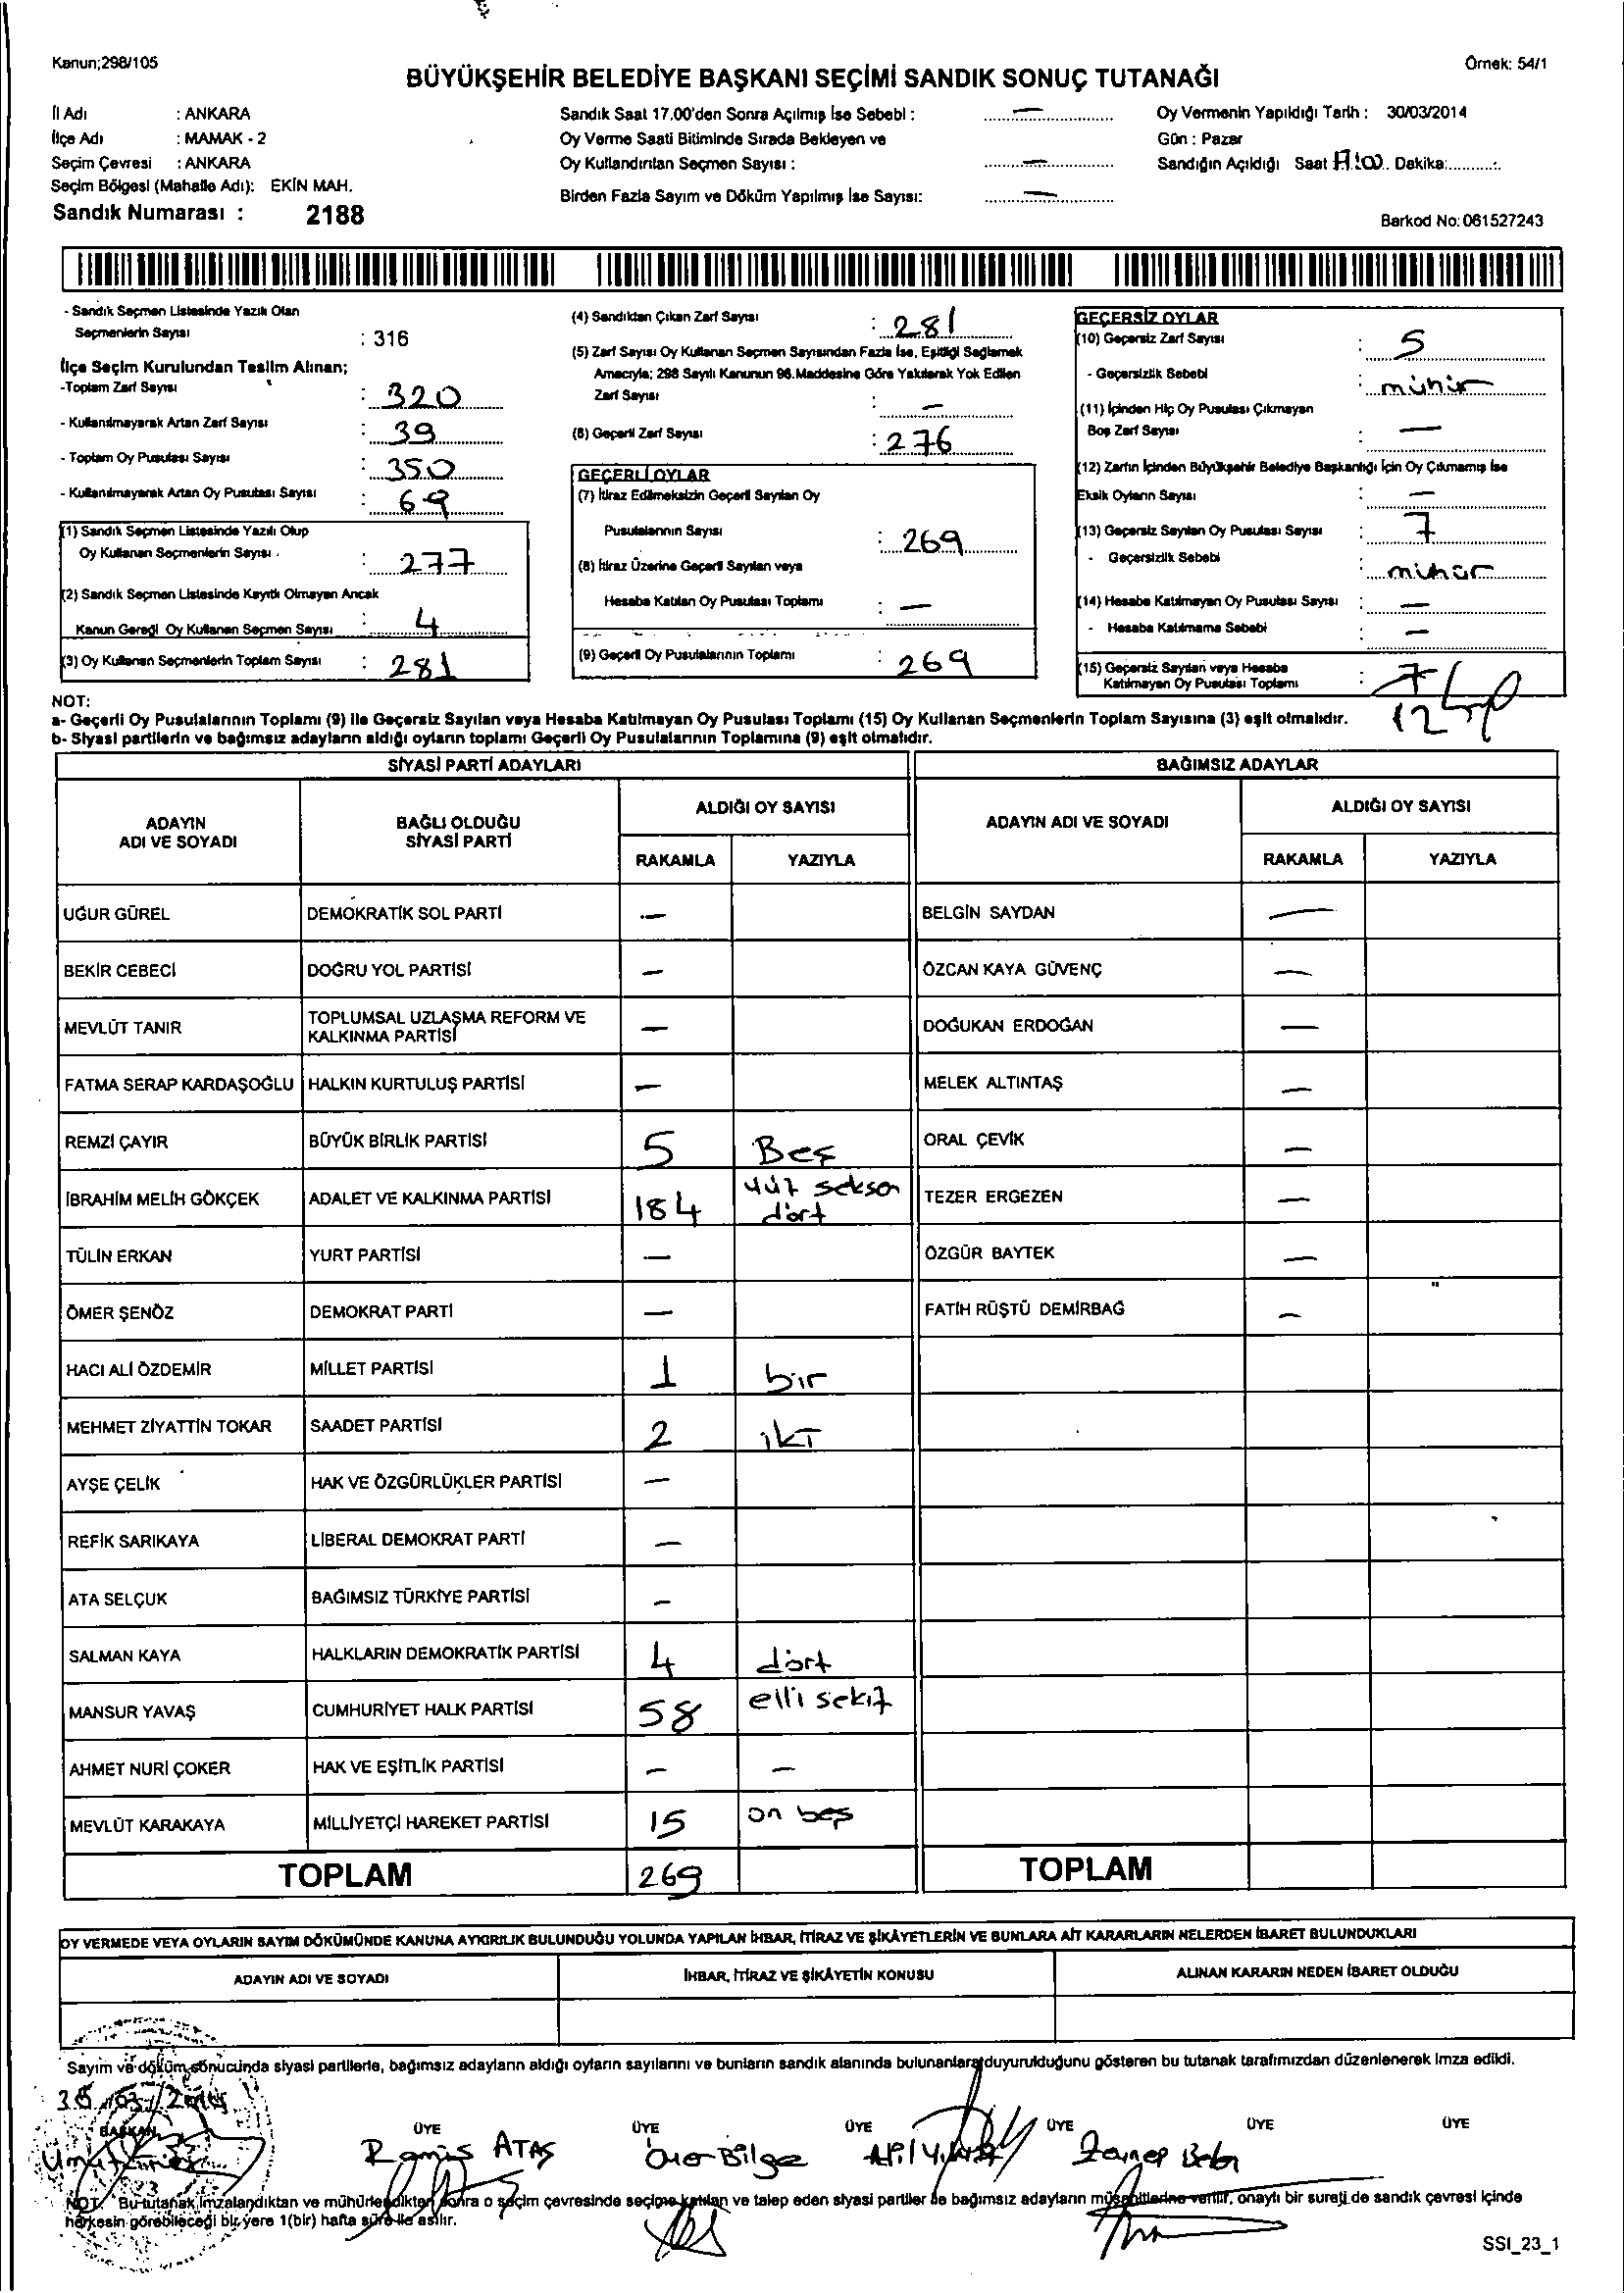 Kanun;298/105
Örnek: 54/1
BÜYÜKŞEHİR BELEDİYE BAŞKANI SEÇİMİ SANDIK SONUÇ TUTANAĞI
İl Adı : ANKARA
İlçe Adı : MAMAK - 2
Seçim Çevresi : ANKARA
Seçim Bölgesi (Mahalle Adı): EKİN MAH.
Sandık Numarası : 2188
Sandık Saat 17.00'den Sonra Açılmış İse Sebebi : —
Oy Verme Saati Bitiminde Sırada Bekleyen ve
Oy Kullandırılan Seçmen Sayısı : —
Birden Fazla Sayım ve Döküm Yapılmış İse Sayısı: —
Oy Vermenin Yapıldığı Tarih : 30/03/2014
Gün : Pazar
Sandığın Açıldığı Saat Dakika:
Barkod No: 061527243
- Sandık Seçmen Listesinde Yazılı Olan
Seçmenlerin Sayısı : 316
İlçe Seçim Kurulundan Teslim Alınan;
-Toplam Zarf Sayısı : 320
- Kullanılmayarak Artan Zarf Sayısı : 39
- Toplam Oy Pusulası Sayısı : 350
- Kullanılmayarak Artan Oy Pusulası Sayısı : 69
(1) Sandık Seçmen Listesinde Yazılı Olup
Oy Kullanan Seçmenlerin Sayısı : 277
(2) Sandık Seçmen Listesinde Kayıtlı Olmayan Ancak
Kanun Gereği Oy Kullanan Seçmen Sayısı : 4
(3) Oy Kullanan Seçmenlerin Toplam Sayısı : 281
(4) Sandıktan Çıkan Zarf Sayısı : 281
(5) Zarf Sayısı Oy Kullanan Seçmen Sayısından Fazla İse, Eşitliği Sağlamak
Amacıyla; 298 Sayılı Kanunun 98.Maddesine Göre Yakılarak Yok Edilen
Zarf Sayısı : —
(6) Geçerli Zarf Sayısı : 276
GEÇERLİ OYLAR
(7) İtiraz Edilmeksizin Geçerli Sayılan Oy
Pusulalarının Sayısı : 269
(8) İtiraz Üzerine Geçerli Sayılan veya
Hesaba Katılan Oy Pusulası Toplamı : —
(9) Geçerli Oy Pusulalarının Toplamı : 269
GEÇERSİZ OYLAR
(10) Geçersiz Zarf Sayısı : 5
- Geçersizlik Sebebi : mühür
(11) İçinden Hiç Oy Pusulası Çıkmayan
Boş Zarf Sayısı : —
(12) Zarfın İçinden Büyükşehir Belediye Başkanlığı İçin Oy Çıkmamış İse
Eksik Oyların Sayısı : —
(13) Geçersiz Sayılan Oy Pusulası Sayısı : 7
- Geçersizlik Sebebi : mühür
(14) Hesaba Katılmayan Oy Pusulası Sayısı : —
- Hesaba Katılmama Sebebi : —
(15) Geçersiz Sayılan veya Hesaba
Katılmayan Oy Pusulası Toplamı : 7
12
NOT:
a- Geçerli Oy Pusulalarının Toplamı (9) ile Geçersiz Sayılan veya Hesaba Katılmayan Oy Pusulası Toplamı (15) Oy Kullanan Seçmenlerin Toplam Sayısına (3) eşit olmalıdır.
b- Siyasi partilerin ve bağımsız adayların aldığı oyların toplamı Geçerli Oy Pusulalarının Toplamına (9) eşit olmalıdır.
SİYASİ PARTİ ADAYLARI
ADAYIN
ADI VE SOYADI
BAĞLI OLDUĞU
SİYASİ PARTİ
ALDIĞI OY SAYISI
RAKAMLA YAZIYLA
UĞUR GÜREL DEMOKRATİK SOL PARTİ —
BEKİR CEBECİ DOĞRU YOL PARTİSİ —
MEVLÜT TANIR TOPLUMSAL UZLAŞMA REFORM VE
KALKINMA PARTİSİ —
FATMA SERAP KARDAŞOĞLU HALKIN KURTULUŞ PARTİSİ —
REMZİ ÇAYIR BÜYÜK BİRLİK PARTİSİ 5 Beş
İBRAHİM MELİH GÖKÇEK ADALET VE KALKINMA PARTİSİ 184 yüz seksen
dört
TÜLİN ERKAN YURT PARTİSİ —
ÖMER ŞENÖZ DEMOKRAT PARTİ —
HACI ALİ ÖZDEMİR MİLLET PARTİSİ 1 bir
MEHMET ZİYATTİN TOKAR SAADET PARTİSİ 2 iki
AYŞE ÇELİK HAK VE ÖZGÜRLÜKLER PARTİSİ —
REFİK SARIKAYA LİBERAL DEMOKRAT PARTİ —
ATA SELÇUK BAĞIMSIZ TÜRKİYE PARTİSİ —
SALMAN KAYA HALKLARIN DEMOKRATİK PARTİSİ 4 dört
MANSUR YAVAŞ CUMHURİYET HALK PARTİSİ 58 elli sekiz
AHMET NURİ ÇOKER HAK VE EŞİTLİK PARTİSİ — —
MEVLÜT KARAKAYA MİLLİYETÇİ HAREKET PARTİSİ 15 on beş
TOPLAM 269
BAĞIMSIZ ADAYLAR
ADAYIN ADI VE SOYADI
ALDIĞI OY SAYISI
RAKAMLA YAZIYLA
BELGİN SAYDAN —
ÖZCAN KAYA GÜVENÇ —
DOĞUKAN ERDOĞAN —
MELEK ALTINTAŞ —
ORAL ÇEVİK —
TEZER ERGEZEN —
ÖZGÜR BAYTEK —
FATİH RÜŞTÜ DEMİRBAĞ —
TOPLAM
OY VERMEDE VEYA OYLARIN SAYIM DÖKÜMÜNDE KANUNA AYKIRILIK BULUNDUĞU YOLUNDA YAPILAN İHBAR, İTİRAZ VE ŞİKÂYETLERİN VE BUNLARA AİT KARARLARIN NELERDEN İBARET BULUNDUKLARI
ADAYIN ADI VE SOYADI İHBAR, İTİRAZ VE ŞİKÂYETİN KONUSU ALINAN KARARIN NEDEN İBARET OLDUĞU
Sayım ve döküm sonucunda siyasi partilerle, bağımsız adayların aldığı oyların sayılarını ve bunların sandık alanında bulunanlara duyurulduğunu gösteren bu tutanak tarafımızdan düzenlenerek imza edildi.
BAŞKAN ÜYE ÜYE ÜYE ÜYE ÜYE ÜYE
Ramis ATAŞ Bilge Zeynep
NOT: Bu tutanak, imzalandıktan ve mühürlendikten sonra o seçim çevresinde seçime katılan ve talep eden siyasi partiler ile bağımsız adayların müşahitlerine verilir, onaylı bir sureti de sandık çevresi içinde
herkesin görebileceği bir yere 1(bir) hafta süre ile asılır.
SSI_23_1